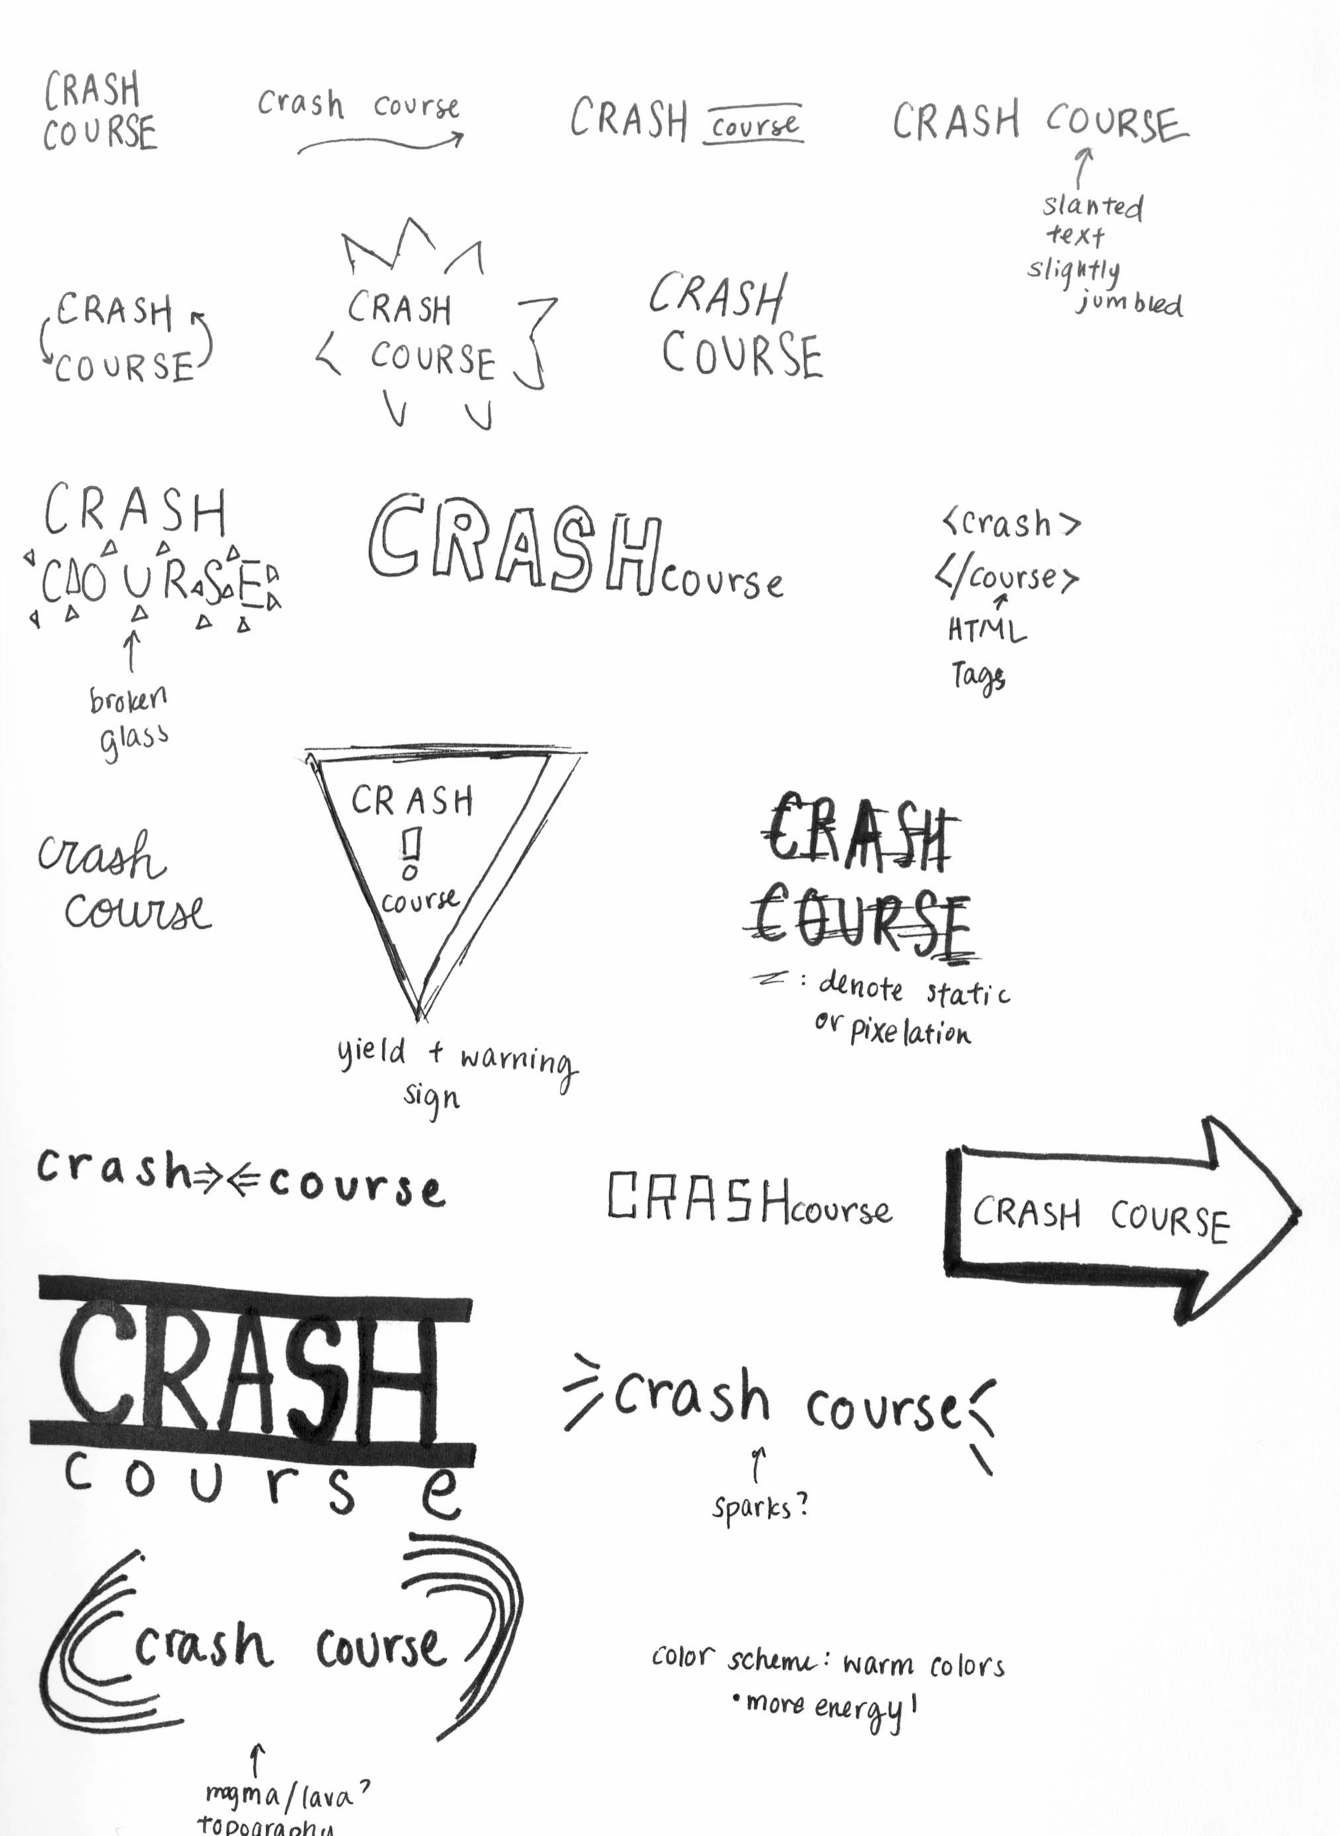 CRASH
COURSE
crash course
CRASH course
CRASH COURSE
slanted
text
slightly
jumbled
CRASH
COURSE
CRASH
COURSE
CRASH
COURSE
CRASH
COURSE
broken
glass
CRASHcourse
<crash>
</course>
HTML
Tags
crash
course
CRASH
!
course
yield + warning
sign
CRASH
COURSE
: denote static
or pixelation
crash⇒⇐course
CRASHcourse
CRASH COURSE
CRASH
course
crash course
sparks?
crash course
magma/lava?
topography
color scheme: warm colors
• more energy!